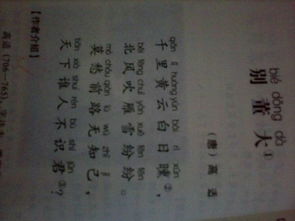 bié dǒng dà
别董大①
（唐）高适
qiān lǐ huáng yún bái rì xūn
千里黄云白日曛②，
běi fēng chuī yàn xuě fēn fēn
北风吹雁雪纷纷。
mò chóu qián lù wú zhī jǐ
莫愁前路无知己，
tiān xià shuí rén bù shí jūn
天下谁人不识君③？
【作者介绍】
高适